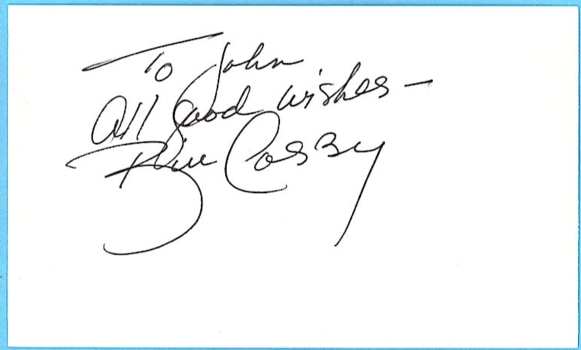 To John
All good wishes -
Bill Cosby